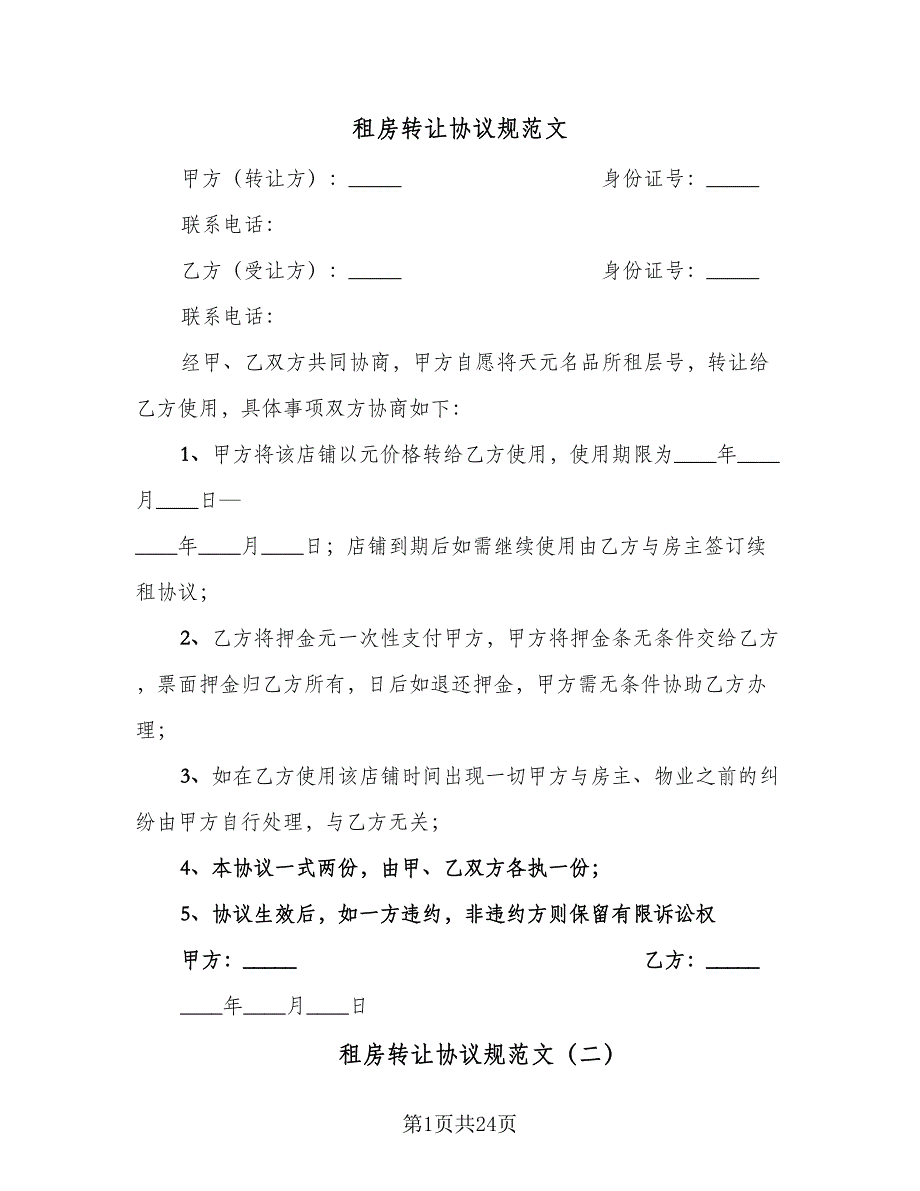 租房转让协议规范文
甲方（转让方）：_____ 身份证号：_____
联系电话：
乙方（受让方）：_____ 身份证号：_____
联系电话：
经甲、乙双方共同协商，甲方自愿将天元名品所租层号，转让给
乙方使用，具体事项双方协商如下：
1、甲方将该店铺以元价格转给乙方使用，使用期限为____年____
月____日—
____年____月____日；店铺到期后如需继续使用由乙方与房主签订续
租协议；
2、乙方将押金元一次性支付甲方，甲方将押金条无条件交给乙方
，票面押金归乙方所有，日后如退还押金，甲方需无条件协助乙方办
理；
3、如在乙方使用该店铺时间出现一切甲方与房主、物业之前的纠
纷由甲方自行处理，与乙方无关；
4、本协议一式两份，由甲、乙双方各执一份；
5、协议生效后，如一方违约，非违约方则保留有限诉讼权
甲方：_____ 乙方：_____
____年____月____日
租房转让协议规范文（二）
第1页共24页